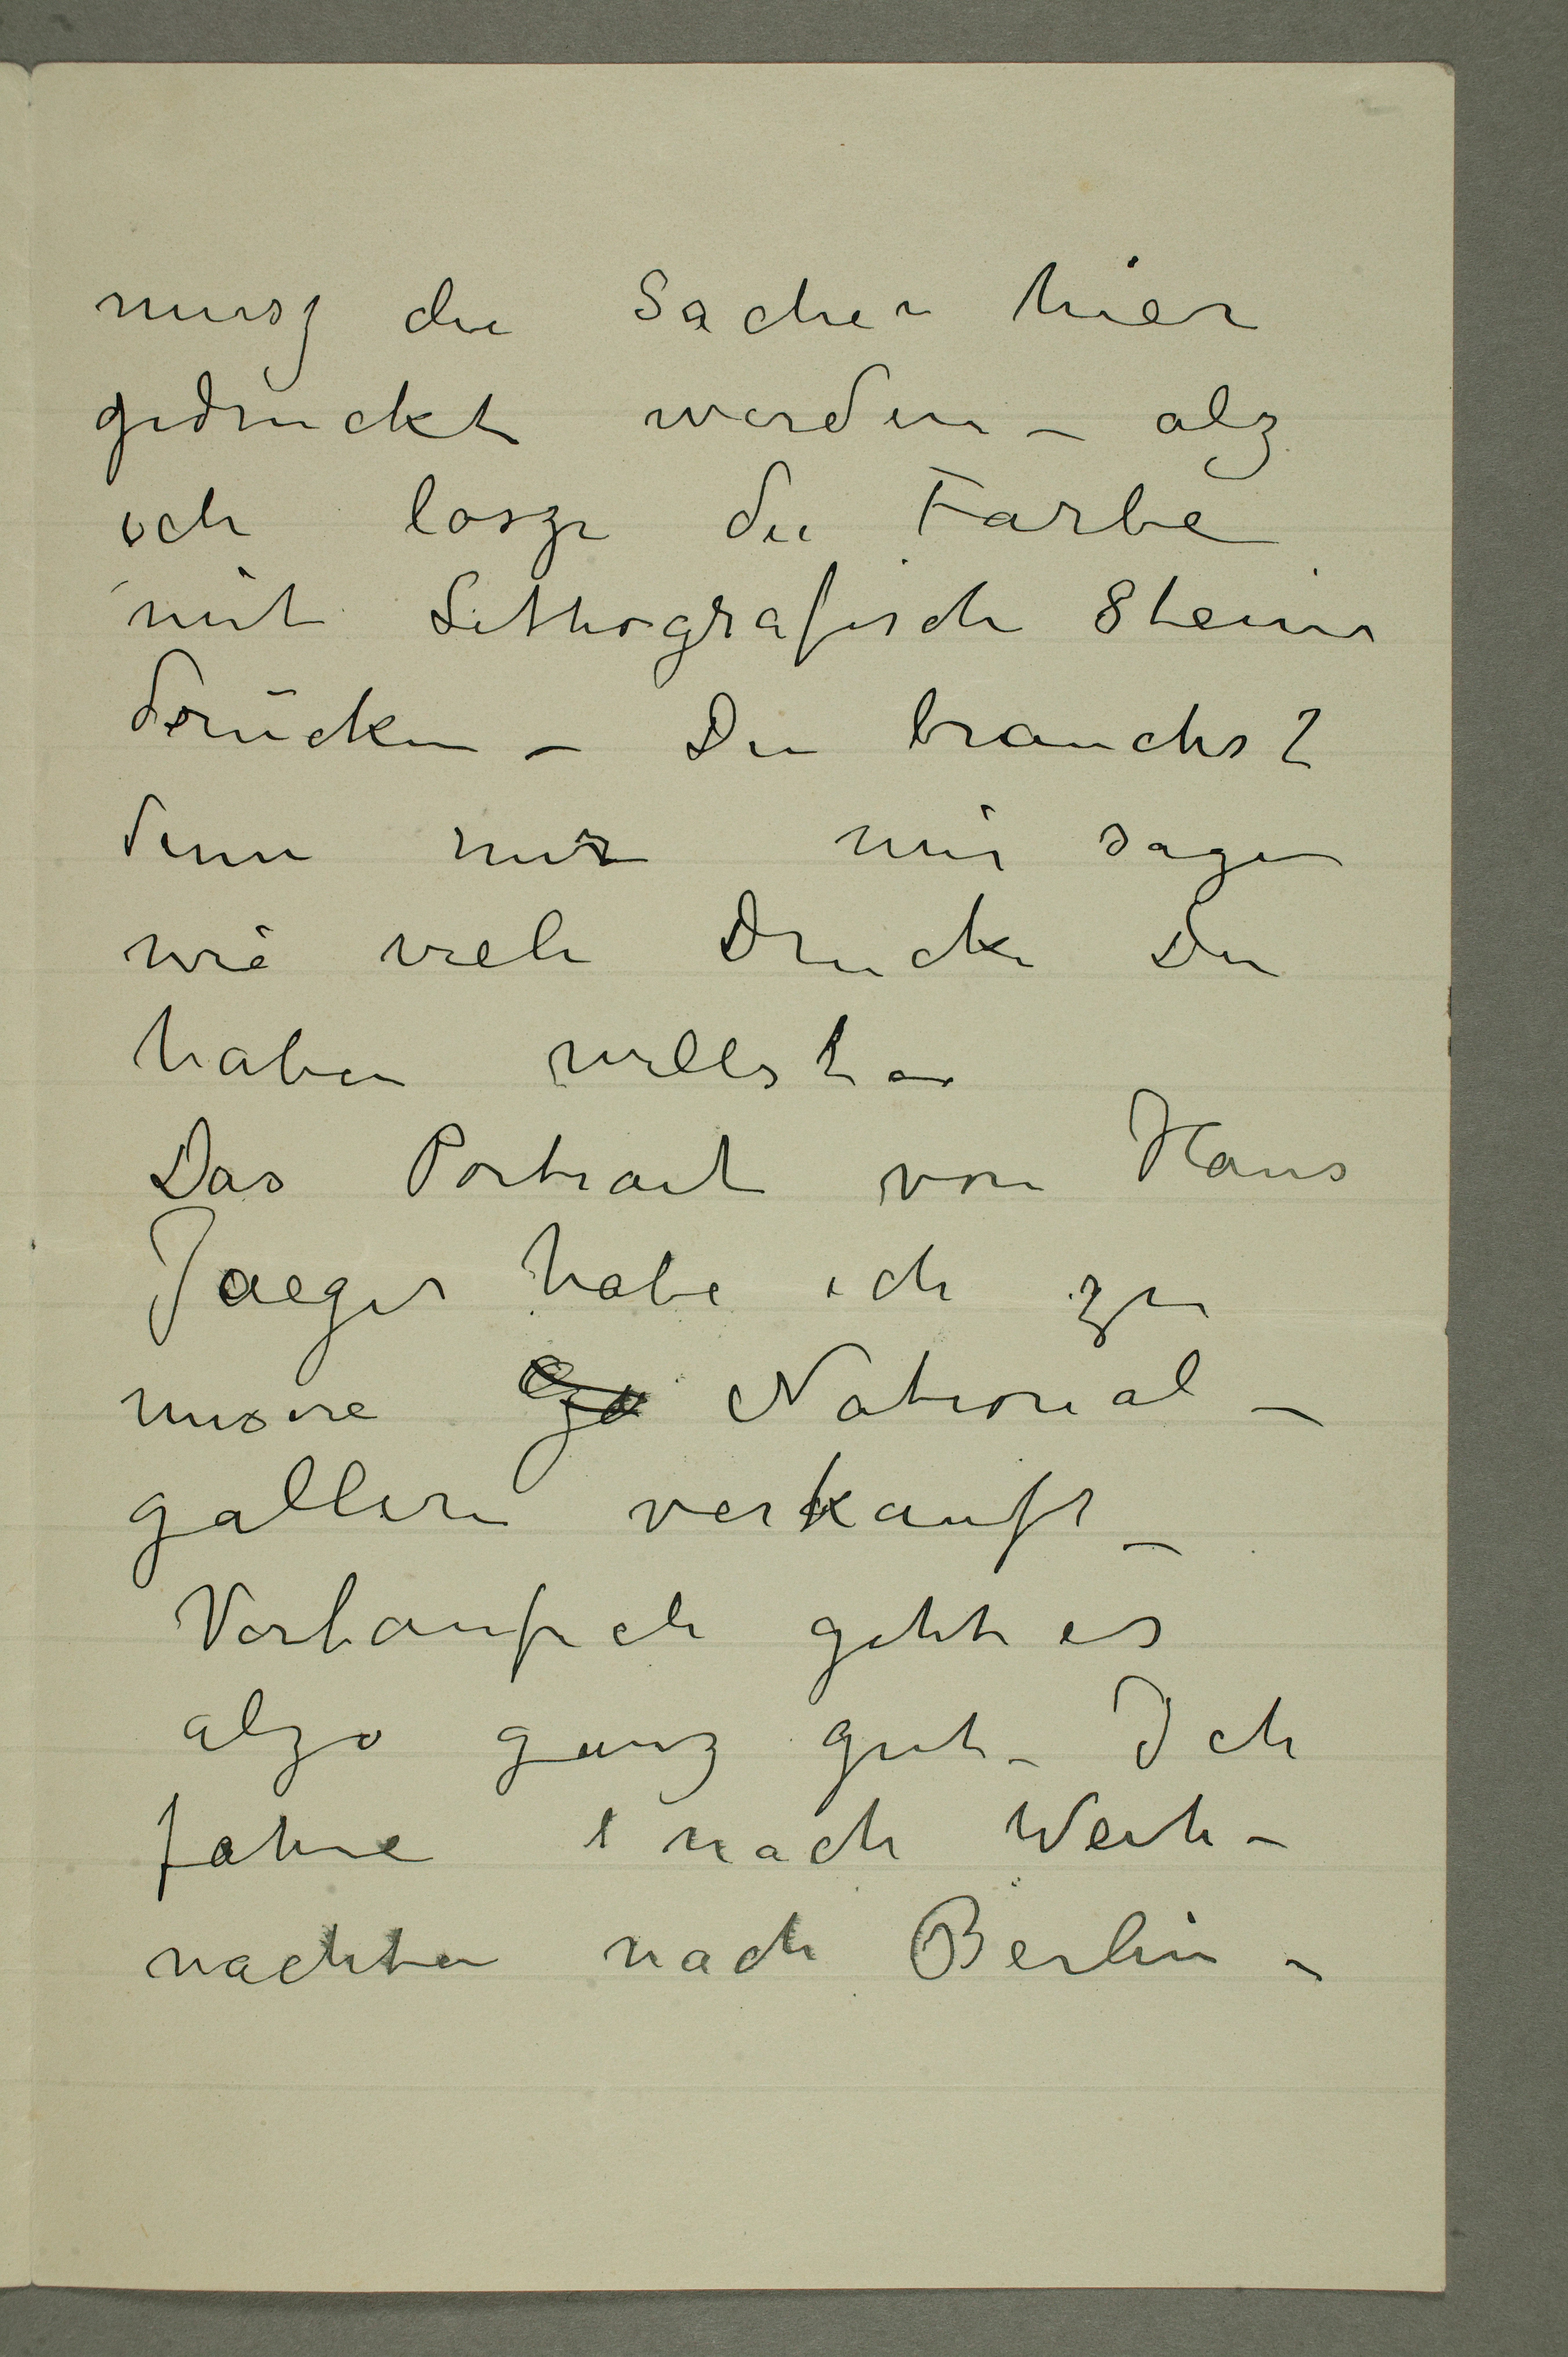 musz die Sachen hier
gedruckt werden – alz
ich losze die Farbe
mit Lithografisch Steine
drücken – Du brauchst
denn nur mir sagen
wie viele Drucke Du
haben willst –
Das Portrait von Hans
Jaeger habe ich zu
unsere National –
gallerie verkauft –
Vorlaufich geht es
alzo ganz gut – Ich
fahre nach Weih –
nachten nach Berlin –